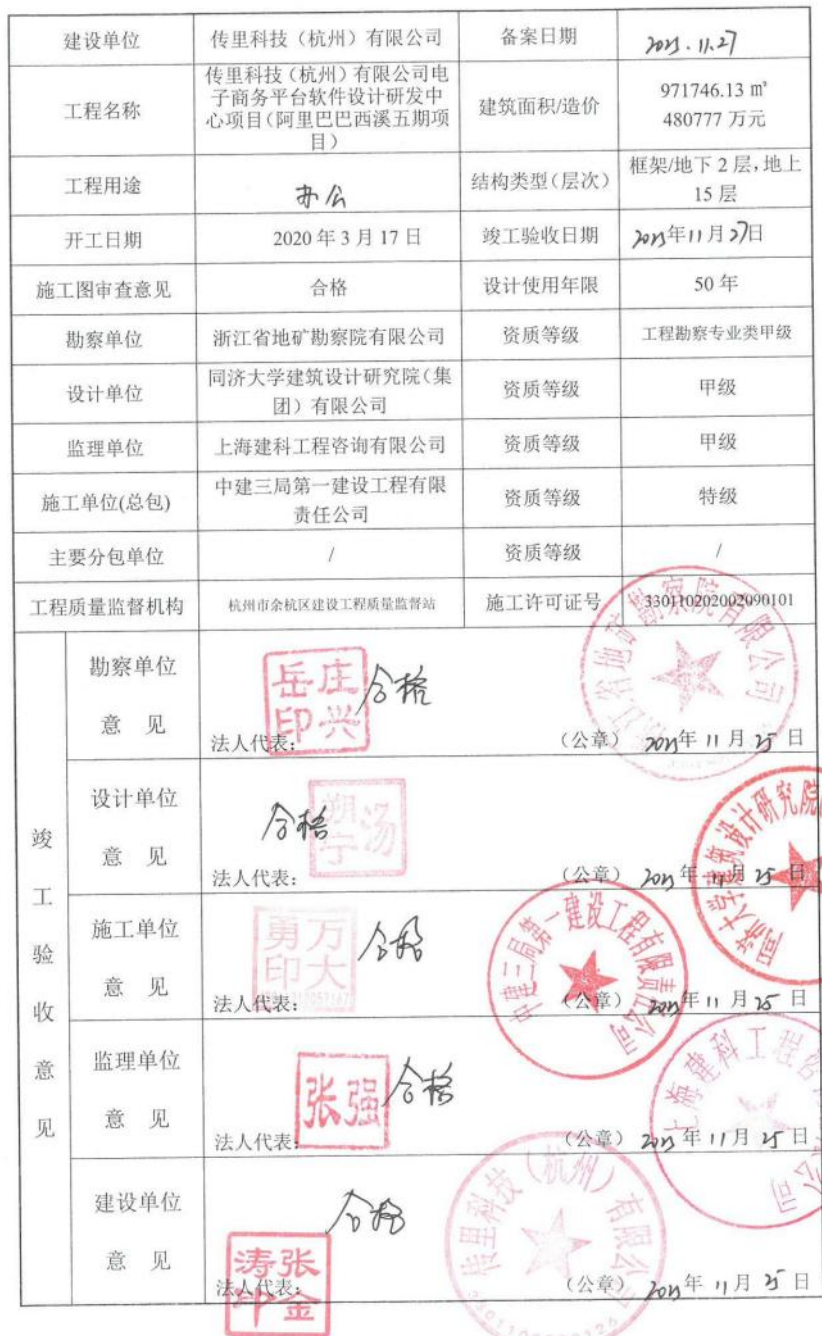 建设单位 传里科技（杭州）有限公司 备案日期 2023.11.27
工程名称 传里科技（杭州）有限公司电
子商务平台软件设计研发中
心项目（阿里巴巴西溪五期项
目）
建筑面积/造价 971746.13 ㎡
480777 万元
工程用途 办公 结构类型（层次） 框架/地下 2 层，地上
15 层
开工日期 2020 年 3 月 17 日 竣工验收日期 2023年11月27日
施工图审查意见 合格 设计使用年限 50 年
勘察单位 浙江省地矿勘察院有限公司 资质等级 工程勘察专业类甲级
设计单位 同济大学建筑设计研究院（集
团）有限公司 资质等级 甲级
监理单位 上海建科工程咨询有限公司 资质等级 甲级
施工单位(总包) 中建三局第一建设工程有限
责任公司 资质等级 特级
主要分包单位 / 资质等级 /
工程质量监督机构 杭州市余杭区建设工程质量监督站 施工许可证号 330110202002090101
竣工验收意见
勘察单位
意 见
合格
庄兴
岳印
法人代表： （公章） 2023年 11 月 25 日
浙江省地矿勘察院有限公司
设计单位
意 见
合格
汤
朔宁
法人代表： （公章） 2023年 11 月 25 日
同济大学建筑设计研究院
施工单位
意 见
合格
万大
勇印
法人代表： （公章） 2023年 11 月 25 日
中建三局第一建设工程有限责任公司
监理单位
意 见
合格
张强
法人代表： （公章） 2023年 11 月 25 日
上海建科工程咨
公司
建设单位
意 见
合格
张金
涛印
法人代表： （公章） 2023年 11 月 25 日
传里科技（杭州）有限公司